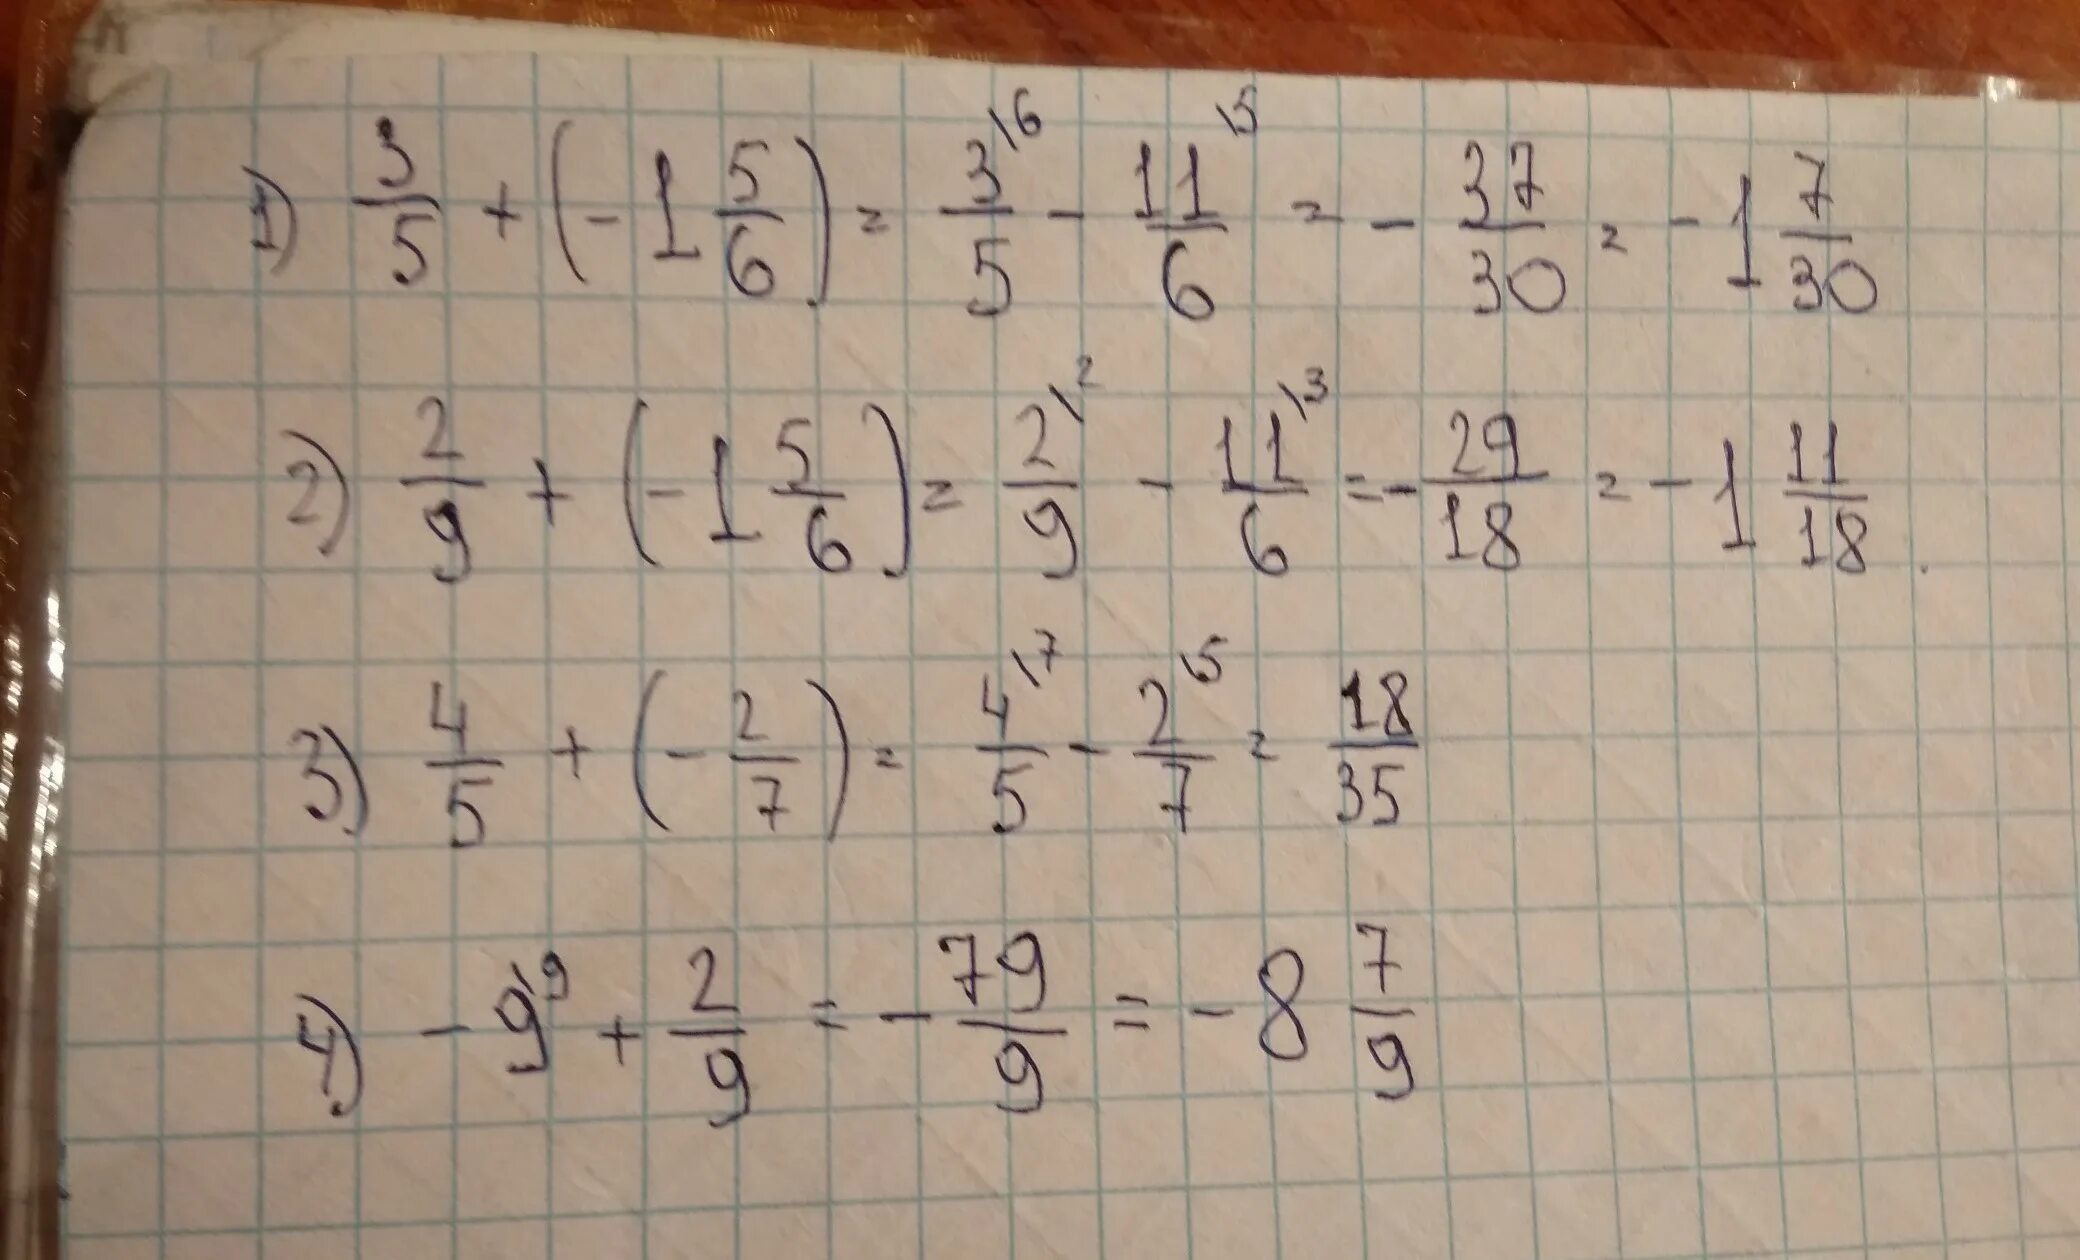 1) 3/5 + (-1 5/6) = 3/5 \6 - 11/6 \5 = - 37/30 = -1 7/30
2) 2/9 + (-1 5/6) = 2/9 \2 - 11/6 \3 = - 29/18 = -1 11/18.
3) 4/5 + (- 2/7) = 4/5 \7 - 2/7 \5 = 18/35
4) -9 \9 + 2/9 = - 79/9 = -8 7/9